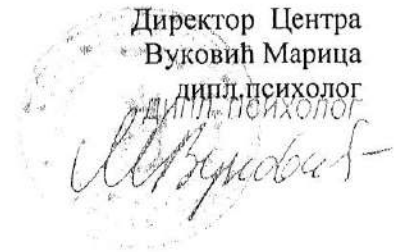 Директор Центра
Вуковић Марица
дипл.психолог
дипл. психолог
МВуковић